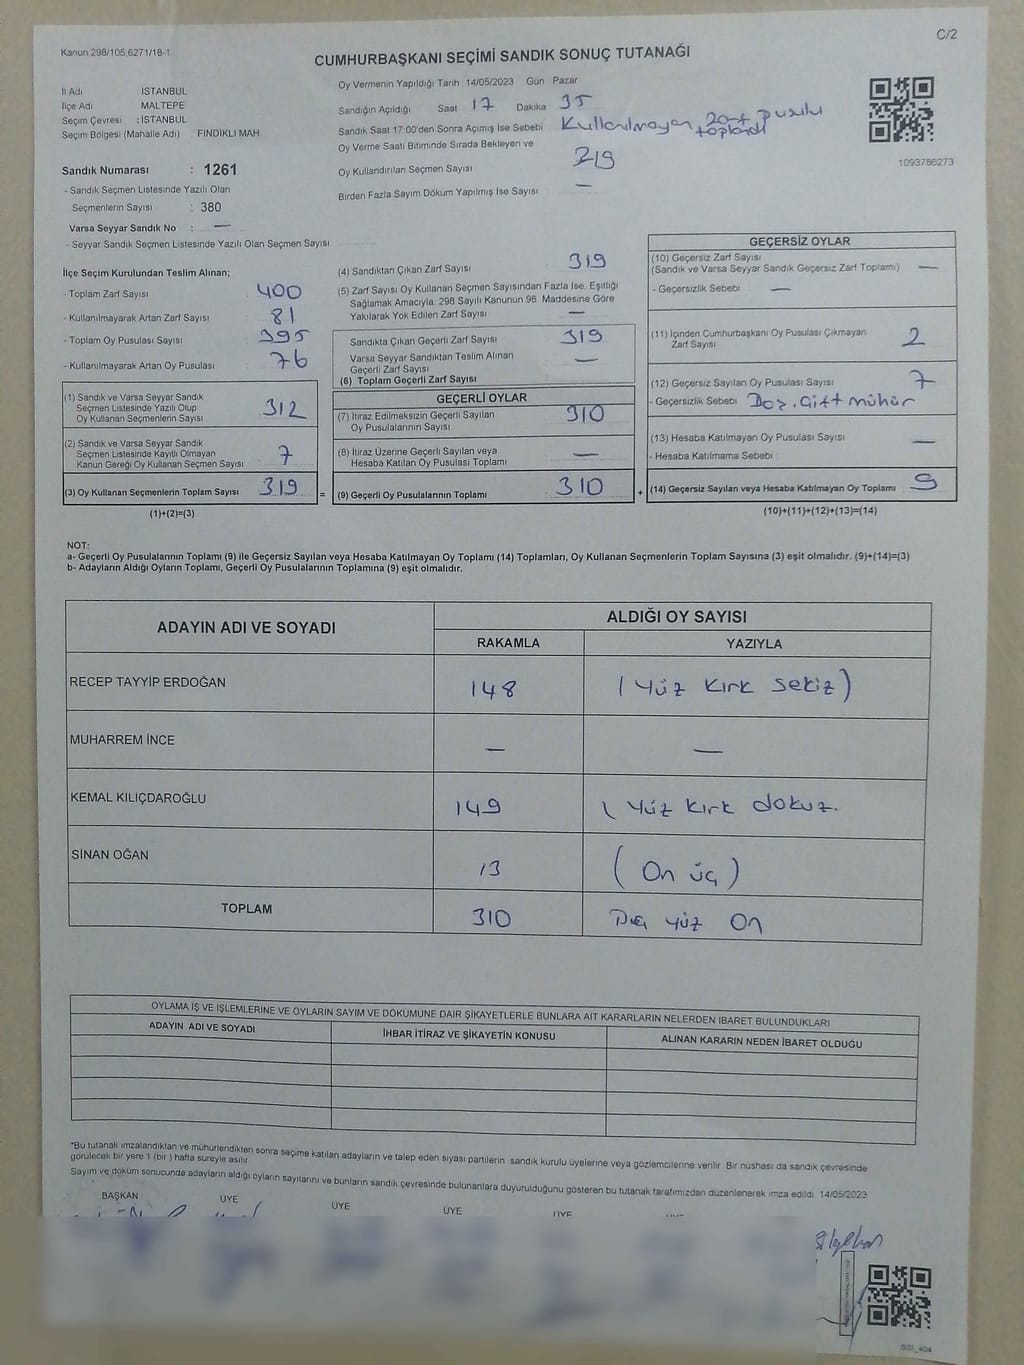 C/2
Kanun 298/105,6271/18-1
CUMHURBAŞKANI SEÇİMİ SANDIK SONUÇ TUTANAĞI
İl Adı İSTANBUL
İlçe Adı MALTEPE
Seçim Çevresi : İSTANBUL
Seçim Bölgesi (Mahalle Adı) FINDIKLI MAH.
Sandık Numarası : 1261
- Sandık Seçmen Listesinde Yazılı Olan
Seçmenlerin Sayısı : 380
Varsa Seyyar Sandık No : —
- Seyyar Sandık Seçmen Listesinde Yazılı Olan Seçmen Sayısı
Oy Vermenin Yapıldığı Tarih 14/05/2023 Gün Pazar
Sandığın Açıldığı Saat 17 Dakika 35
Sandık Saat 17:00'den Sonra Açımış İse Sebebi Kullanılmayan pusula
toplandı
Oy Verme Saati Bitiminde Sırada Bekleyen ve
Oy Kullandırılan Seçmen Sayısı 319
Birden Fazla Sayım Döküm Yapılmış İse Sayısı —
1093786273
İlçe Seçim Kurulundan Teslim Alınan;
- Toplam Zarf Sayısı 400
- Kullanılmayarak Artan Zarf Sayısı 81
- Toplam Oy Pusulası Sayısı 395
- Kullanılmayarak Artan Oy Pusulası 76
(1) Sandık ve Varsa Seyyar Sandık
Seçmen Listesinde Yazılı Olup
Oy Kullanan Seçmenlerin Sayısı 312
(2) Sandık ve Varsa Seyyar Sandık
Seçmen Listesinde Kayıtlı Olmayan
Kanun Gereği Oy Kullanan Seçmen Sayısı 7
(3) Oy Kullanan Seçmenlerin Toplam Sayısı 319 =
(1)+(2)=(3)
(4) Sandıktan Çıkan Zarf Sayısı 319
(5) Zarf Sayısı Oy Kullanan Seçmen Sayısından Fazla İse, Eşitliği
Sağlamak Amacıyla; 298 Sayılı Kanunun 98. Maddesine Göre
Yakılarak Yok Edilen Zarf Sayısı —
Sandıkta Çıkan Geçerli Zarf Sayısı 319
Varsa Seyyar Sandıktan Teslim Alınan
Geçerli Zarf Sayısı —
(6) Toplam Geçerli Zarf Sayısı
GEÇERLİ OYLAR
(7) İtiraz Edilmeksizin Geçerli Sayılan
Oy Pusulalarının Sayısı 310
(8) İtiraz Üzerine Geçerli Sayılan veya
Hesaba Katılan Oy Pusulası Toplamı —
(9) Geçerli Oy Pusulalarının Toplamı : 310 +
GEÇERSİZ OYLAR
(10) Geçersiz Zarf Sayısı
(Sandık ve Varsa Seyyar Sandık Geçersiz Zarf Toplamı) —
- Geçersizlik Sebebi —
(11) İçinden Cumhurbaşkanı Oy Pusulası Çıkmayan
Zarf Sayısı 2
(12) Geçersiz Sayılan Oy Pusulası Sayısı 7
- Geçersizlik Sebebi Boş, Çift mühür
(13) Hesaba Katılmayan Oy Pusulası Sayısı —
- Hesaba Katılmama Sebebi
(14) Geçersiz Sayılan veya Hesaba Katılmayan Oy Toplamı 9
(10)+(11)+(12)+(13)=(14)
NOT:
a- Geçerli Oy Pusulalarının Toplamı (9) ile Geçersiz Sayılan veya Hesaba Katılmayan Oy Toplamı (14) Toplamları, Oy Kullanan Seçmenlerin Toplam Sayısına (3) eşit olmalıdır. (9)+(14)=(3)
b- Adayların Aldığı Oyların Toplamı, Geçerli Oy Pusulalarının Toplamına (9) eşit olmalıdır.
ADAYIN ADI VE SOYADI ALDIĞI OY SAYISI
RAKAMLA YAZIYLA
RECEP TAYYİP ERDOĞAN 148 (Yüz kırk sekiz)
MUHARREM İNCE — —
KEMAL KILIÇDAROĞLU 149 (Yüz kırk dokuz.
SİNAN OĞAN 13 (On üç)
TOPLAM 310 Üç yüz On
OYLAMA İŞ VE İŞLEMLERİNE VE OYLARIN SAYIM VE DÖKÜMÜNE DAİR ŞİKAYETLERLE BUNLARA AİT KARARLARIN NELERDEN İBARET BULUNDUKLARI
ADAYIN ADI VE SOYADI İHBAR İTİRAZ VE ŞİKAYETİN KONUSU ALINAN KARARIN NEDEN İBARET OLDUĞU
*Bu tutanak imzalandıktan ve mühürlendikten sonra seçime katılan adayların ve talep eden siyasi partilerin sandık kurulu üyelerine veya gözlemcilerine verilir. Bir nüshası da sandık çevresinde
görülecek bir yere 1 (bir ) hafta süreyle asılır.
Sayım ve döküm sonucunda adayların aldığı oyların sayılarını ve bunların sandık çevresinde bulunanlara duyurulduğunu gösteren bu tutanak tarafımızdan düzenlenerek imza edildi. 14/05/2023
BAŞKAN ÜYE ÜYE ÜYE ÜYE